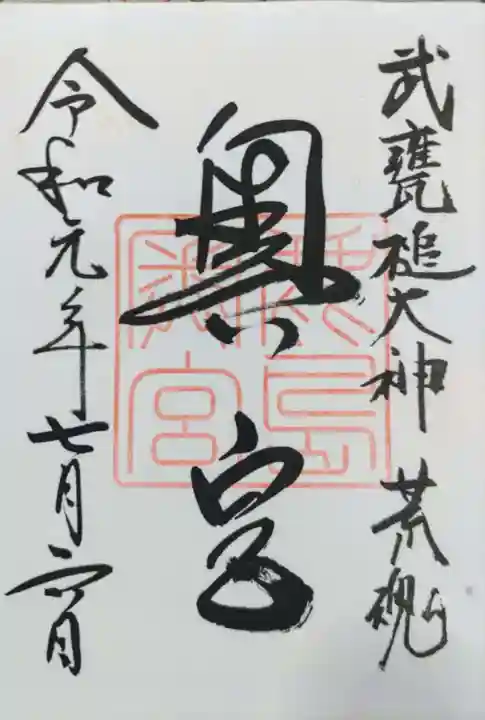 武甕槌大神 荒魂
奥宮
鹿島奥宮
令和元年七月六日